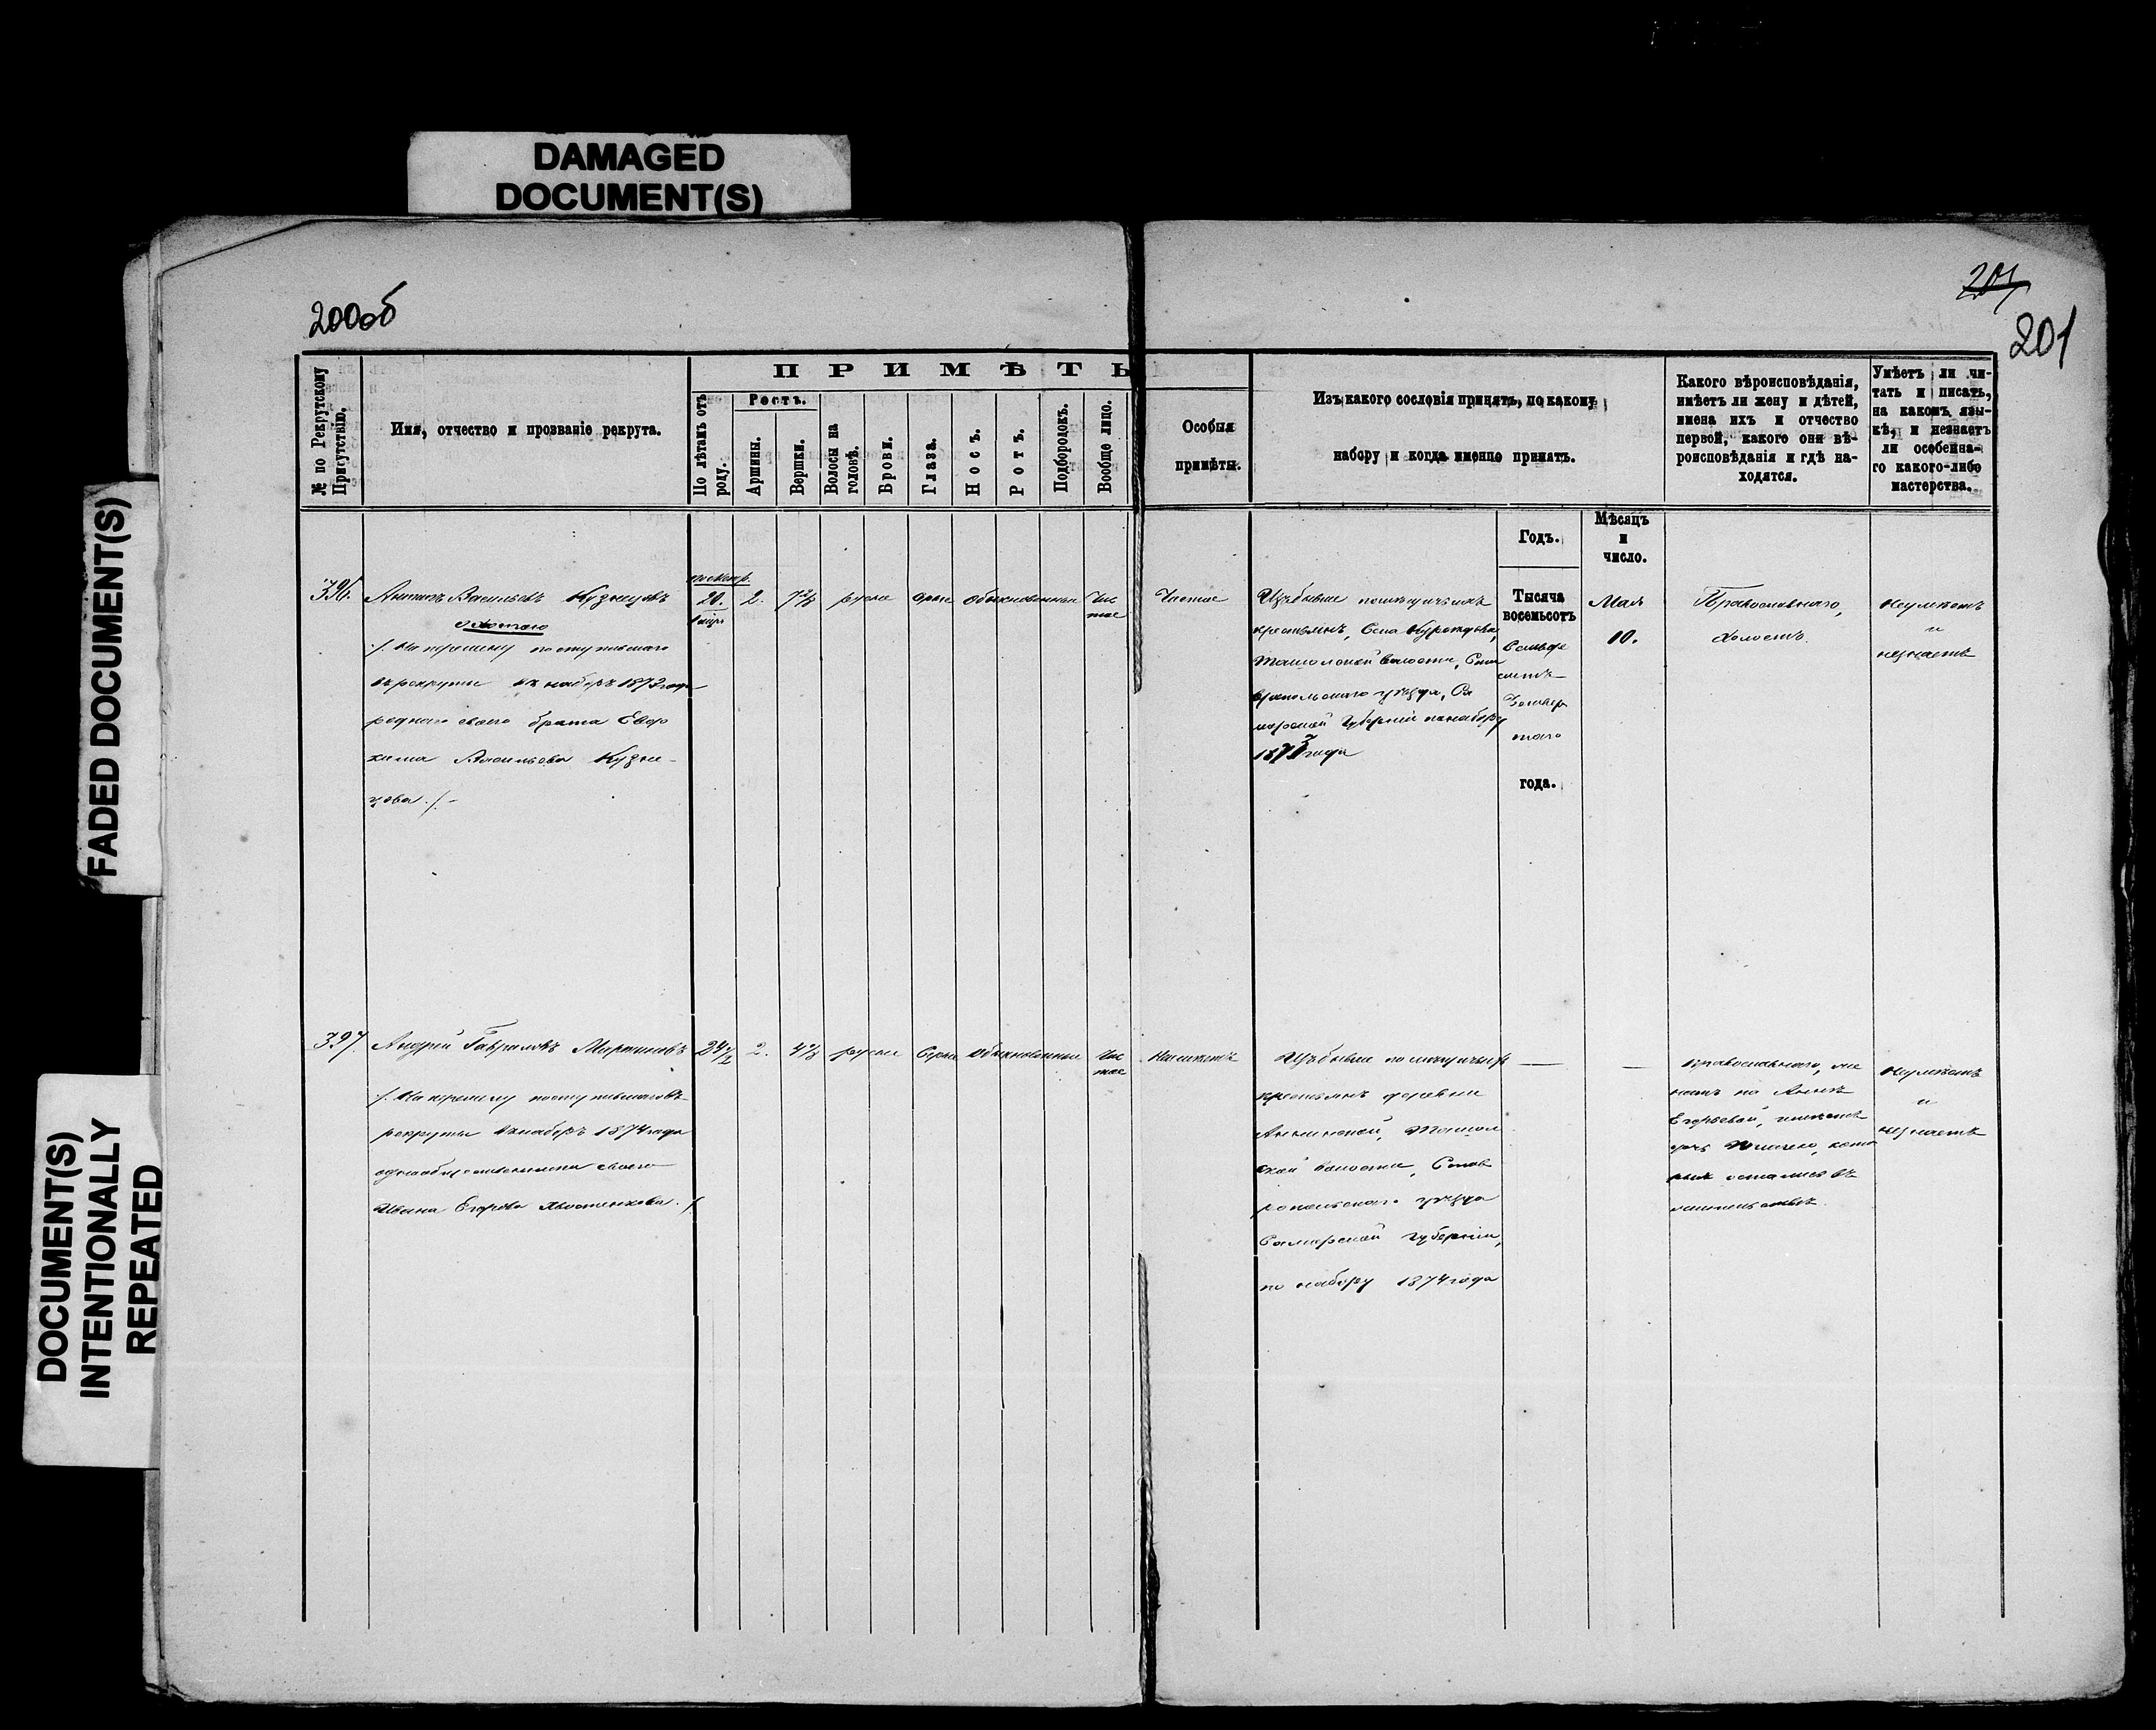 DAMAGED
DOCUMENT(S)
FADED DOCUMENT(S)
DOCUMENT(S)
INTENTIONALLY
REPEATED
200об
201
№ по Рекрутскому
Присутствію.
Имя, отчество и прозваніе рекрута.
ПРИМѢТЫ
По лѣтамъ отъ
роду.
Ростъ.
Аршины.
Вершки.
Волосы на
головѣ.
Брови.
Глаза.
Носъ.
Ротъ.
Подбородокъ.
Вообще лицо.
Особыя
примѣты.
Изъ какого сословія принятъ, по какому
набору и когда именно принятъ.
Какого вѣроисповѣданія,
имѣетъ ли жену и дѣтей,
имена ихъ и отчество
первой, какого они вѣ-
роисповѣданія и гдѣ на-
ходятся.
Умѣетъ ли чи-
тать и писать,
на какомъ язы-
кѣ, и незнаетъ
ли особенна-
го какого-либо
мастерства.
Годъ.
Мѣсяцъ
и
число.
396.
Васильевъ Кузнецовъ
охотою
/. На перемену поступившаго
въ рекруты въ наборъ 1873 года
роднаго своего брата Евдо
кима Васильева Кузне-
цова./-
20.
2.
русые
обыкновенные
Чис
тое
Изъ бывше помѣщичьихъ
крестьянъ, Села
волости, Став
ропольскаго уѣзда, Са
марской Губерніи по набору
1873 года
Тысяча
восемьсотъ
Семьде
сятъ
Четвер
таго
года.
Мая
10.
Православнаго,
Холостъ.
Неумѣетъ
и
незнаетъ
397.
Андрей Гавриловъ Мартыновъ
/. На перемену поступившаго въ
рекруты въ наборъ 1874 года
однообщественника своего
Ивана Егорова ./
24 1/2
2.
русые
Серые
Обыкновенные
Чис
тое
Неимеетъ
Изъ бывше помѣщичьихъ
крестьянъ деревни
Аннинской,
ской волости, Став
ропольскаго уѣзда
Самарской Губерніи,
по набору 1874 года
—
—
Православнаго, же
натъ на Аннѣ
Егорьевой, имѣетъ
дочь кото
рые остались въ
жительствѣ.
Неумѣетъ
и
незнаетъ